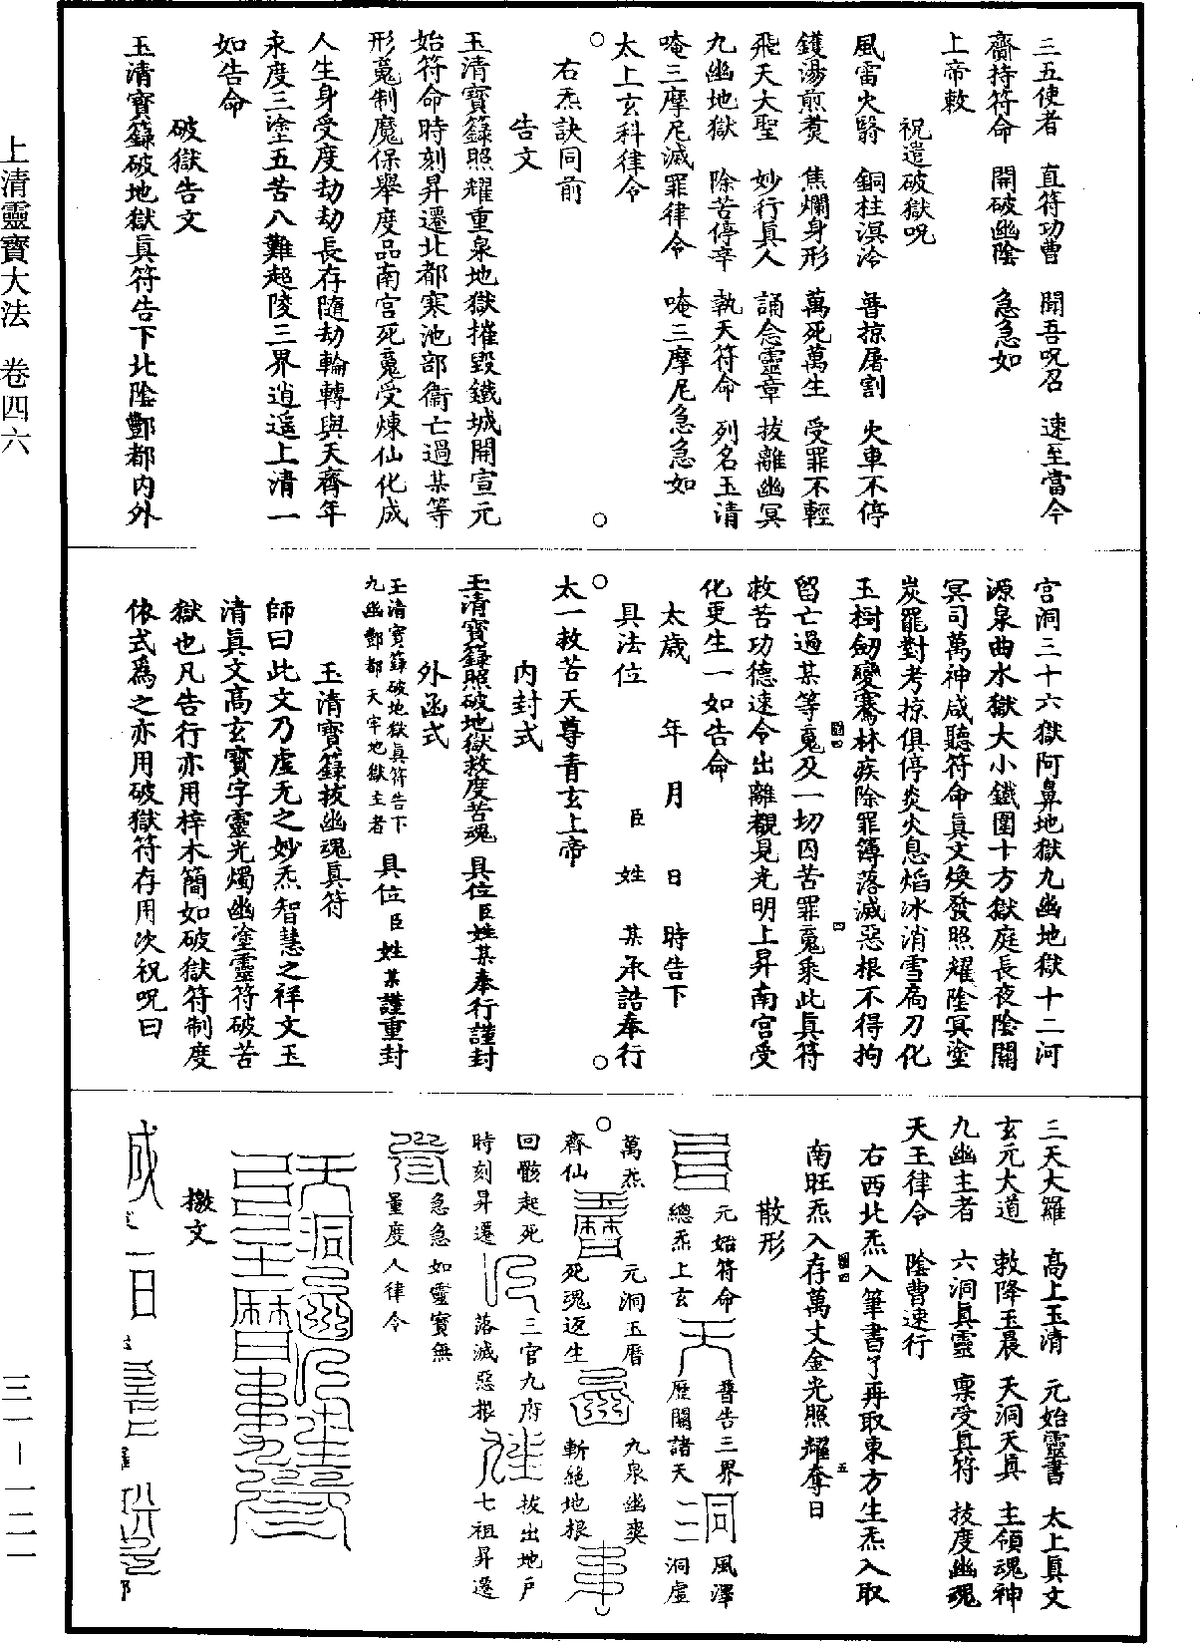 三五使者　直符功曹　聞吾呪召　速至當今
齎持符命　開破幽陰　急急如
上帝敕
祝遣破獄呪
風雷火翳　銅柱溟泠　普掠屠割　火車不停
鑊湯煎煑　焦爛身形　萬死萬生　受罪不輕
飛天大聖　妙行眞人　誦念靈章　拔離幽冥
九幽地獄　除苦停辛　執天符命　列名玉清
唵三摩尼滅罪律令　唵三摩尼急急如
太上玄科律令
○　○
右炁訣同前
告文
玉清寶籙照耀重泉地獄摧毀鐵城開宣元
始符命時刻昇遷北都寒池部衞亡過某等
形䰟制魔保舉度品南宮死䰟受煉仙化成
人生身受度劫劫長存隨劫輪轉與天齊年
永度三塗五苦八難超陵三界逍遥上清一
如告命
破獄告文
玉清寶籙破地獄眞符告下北陰酆都内外
宮洞三十六獄阿鼻地獄九幽地獄十二河
源泉曲水獄大小鐵圍十方獄庭長夜陰關
冥司萬神咸聽符命眞文煥發照耀陰冥塗
炭罷對考掠俱停炎火息焰冰消雪腐刀化
玉樹劒變騫林疾除罪簿落滅惡根不得拘
留亡過某等䰟及一切囚苦罪䰟乘此眞符
救苦功德速令出離覩見光明上昇南宮受
化更生一如告命
太歲　年　月　日　時告下
具法位　臣　姓　某承誥奉行
○　○
太一救苦天尊青玄上帝
内封式
玉清寶籙照破地獄救度苦魂　具位臣姓某奉行謹封
外函式
玉清寶籙破地獄眞符告下
九幽酆都天牢地獄主者　具位臣姓某謹重封
玉清寶籙拔幽魂眞符
師曰此文乃虛无之妙炁智慧之祥文玉
清眞文高玄寶字靈光燭幽塗靈符破苦
獄也凡告行亦用梓木簡如破獄符制度
依式爲之亦用破獄符存用次祝呪曰
三天大羅　高上玉清　元始靈書　太上眞文
玄元大道　敕降玉晨　天洞天眞　主領魂神
九幽主者　六洞眞靈　稟受眞符　拔度幽魂
天王律令　陰曹速行
右西北炁入筆書了再取東方生炁入取
南旺炁入存萬丈金光照耀奪日
散形
元始符命　普告三界　風澤
總炁上玄　歷關諸天　洞虛
萬炁　元洞玉曆　九泉幽爽
齊仙　死魂返生　斬絶地根
○
回骸起死　三官九府　拔出地戶
時刻昇遷　落滅惡根　七祖昇遷
急急如靈寶無
量度人律令
檄文
上清靈寶大法　卷四六
三一－一二一